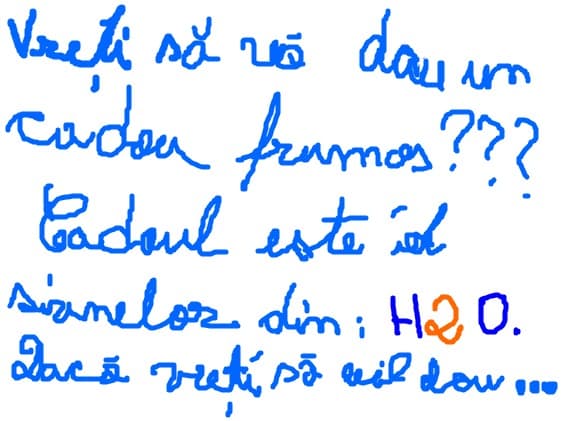 Vreți să vă dau un
cadou frumos???
Cadoul este id
sirenelor din: H2O.
Dacă vreți, să vil dau...